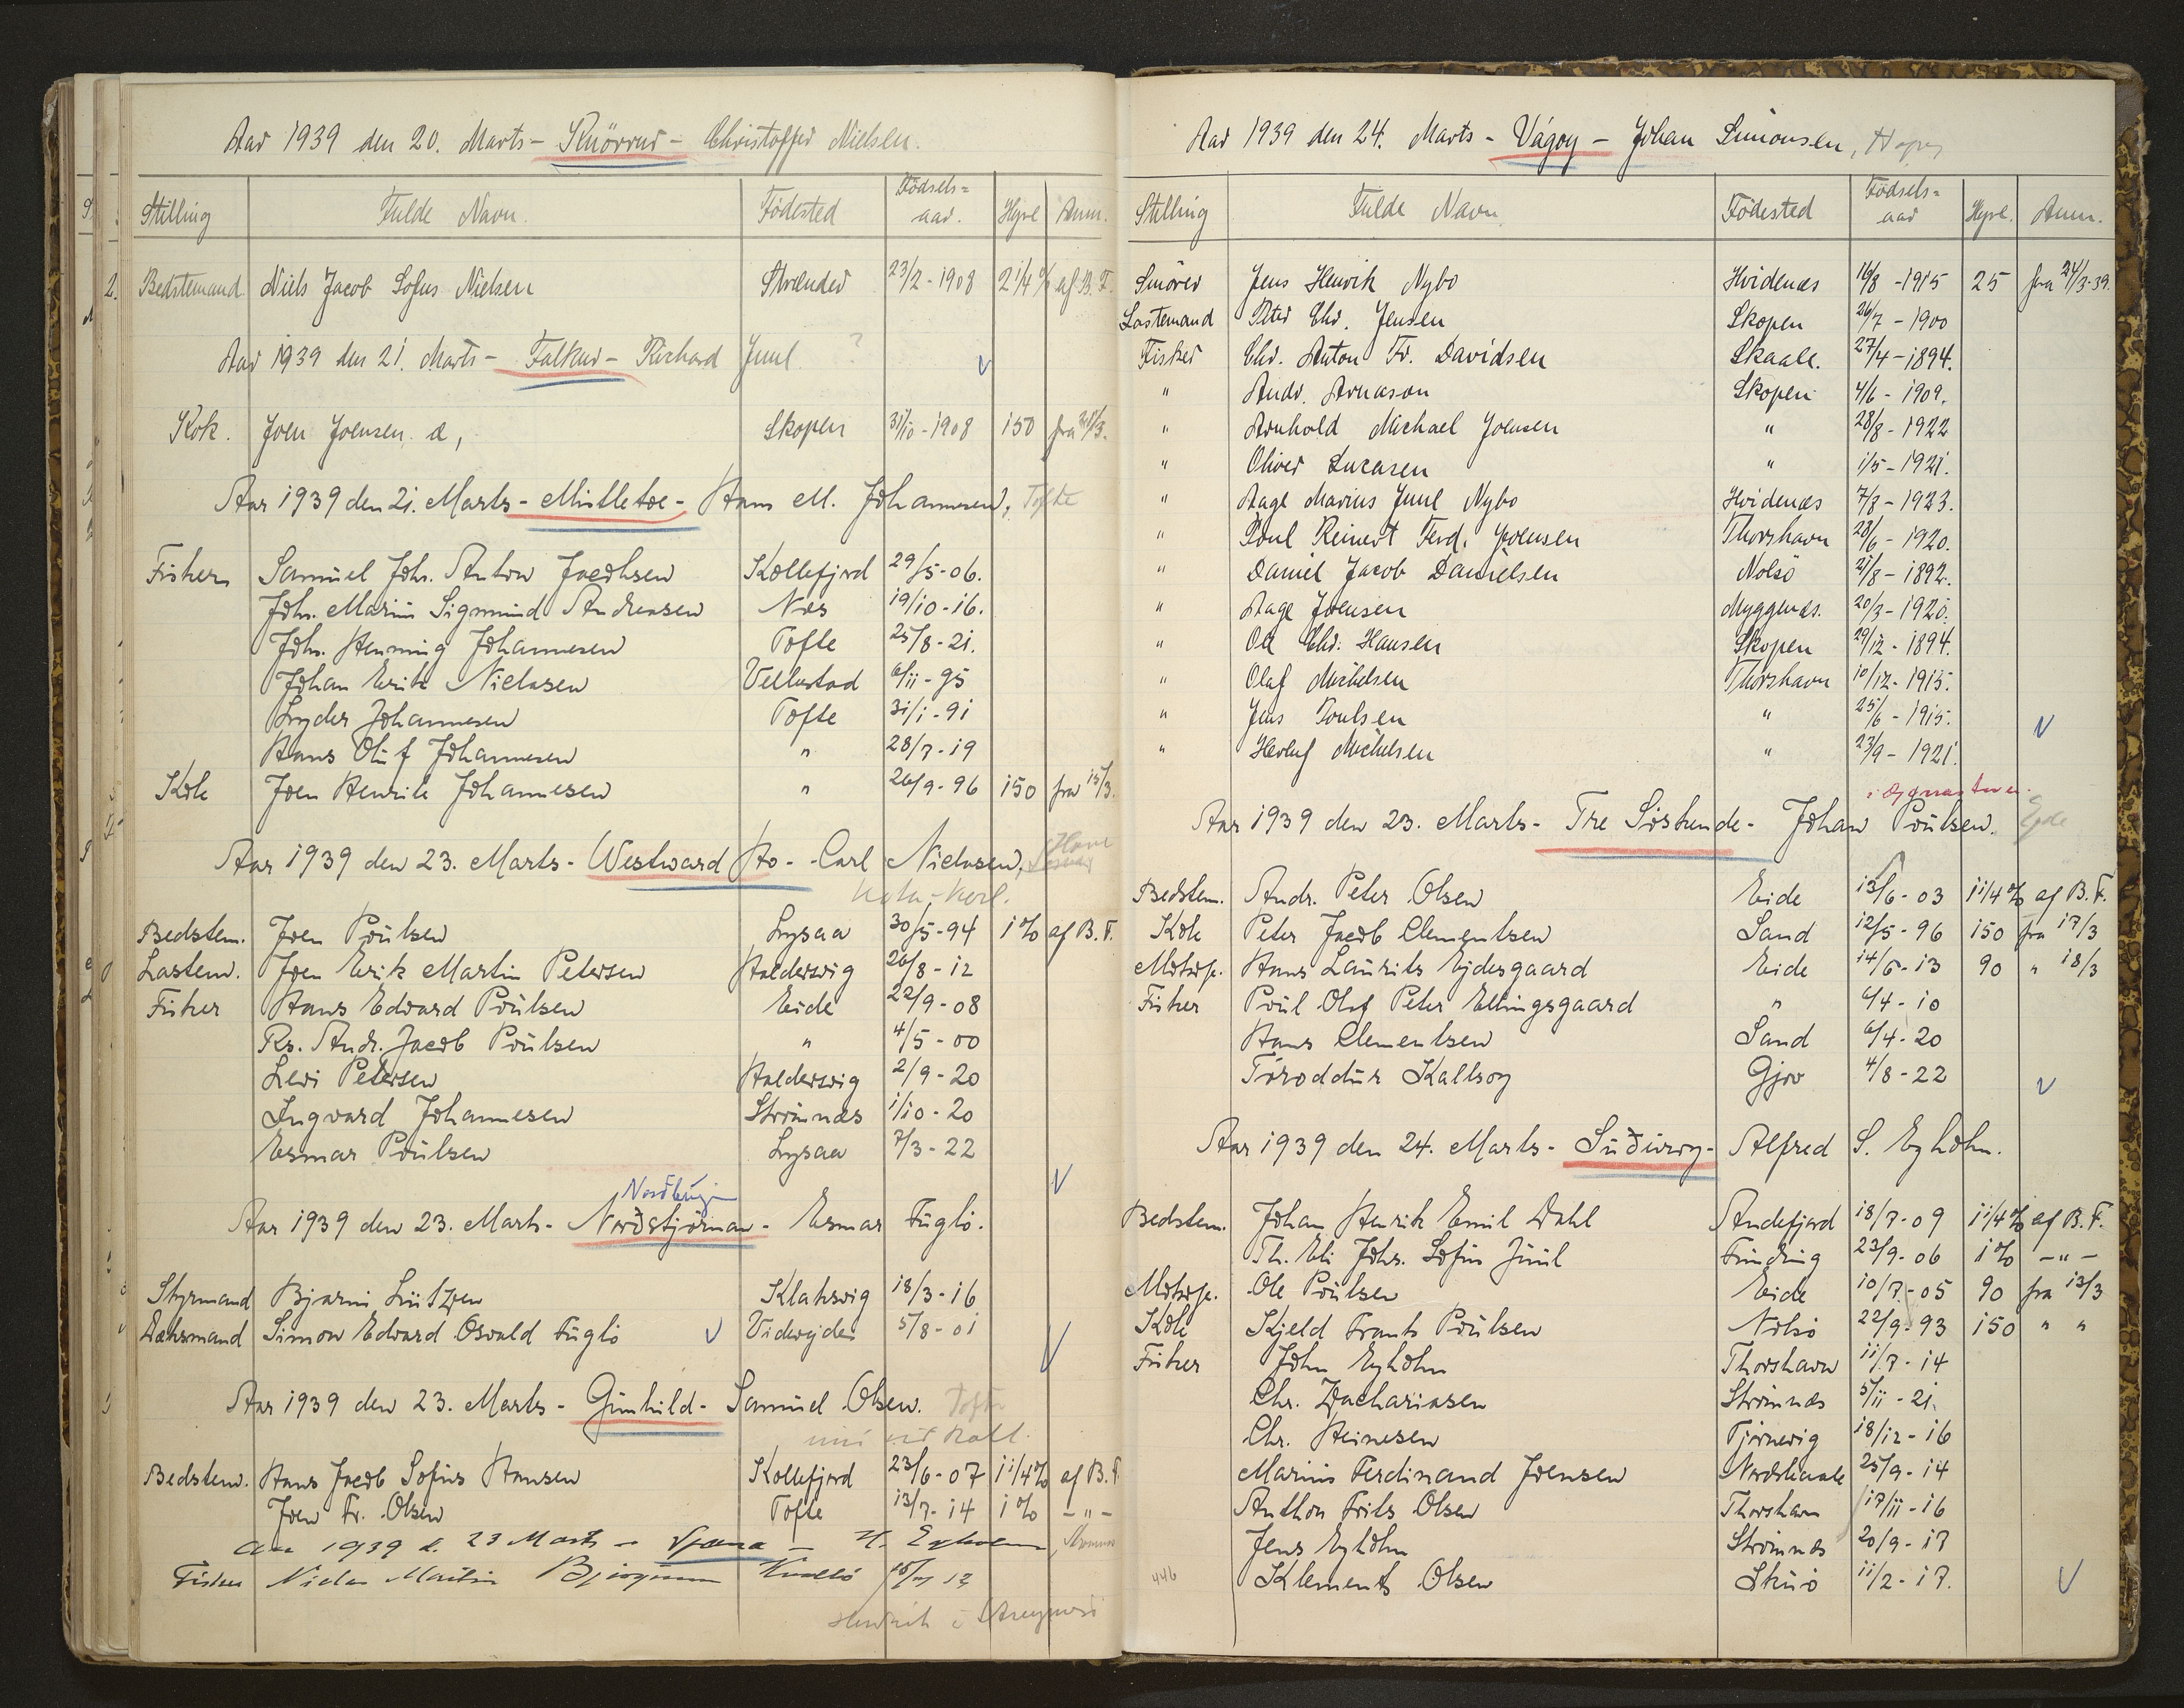 Aar 1939 den 20. Marts - Knörrur - Christoffer Nielsen.
Stilling Fulde Navn. Födested Födsels= aar. Hyre Anm.
Bedstemand Niels Jacob Sofus Nielsen Strænder 23/2 - 1908 2 1/4 % af B. F.
Aar 1939 den 21. Marts - Falkur - Richard Juul ?
Kok. Joen Joensen. d, Skopen 31/10 - 1908 150 fra 21/3.
Aar 1939 den 21. Marts - Mistletoe - Hans M. Johannesen, Tofte
Fisker Samuel Johs. Anton Jacobsen Kollefjord 29/5-06.
Joh. Marius Sigmund Andreasen Næs 19/10-16.
Johs. Henning Johannesen Tofte 25/8-21.
Johan Erik Niclasen Vellestad 6/11-95
Lyder Johannesen Tofte 31/1-91
Hans Oluf Johannesen " 28/7-19
Kok Joen Henrik Johannesen " 26/9-96 150 fra 15/3.
Aar 1939 den 23. Marts - Westward Ho - Carl Niclasen,
Bedstem. Joen Poulsen Lysaa 30/5-94 1% af B. F.
Lastem. Joen Erik Martin Petersen Haldersvig 26/8-12
Fisker Hans Edvard Poulsen Eide 22/9-08
Rs. Andr. Jacob Poulsen " 4/5-00
Levi Petersen Haldersvig 2/9-20
Ingvard Johannesen Strömnæs 1/10-20
Esmar Poulsen Lysaa 7/3-22
Nordbugvin
Aar 1939 den 23. Marts - Norðstjörnan - Esmar Fuglö.
Styrmand Bjarni Lützen Klaksvig 18/3-16
Dæksmand Simon Edvard Osvald Fuglö Videreide 5/8-01
Aar 1939 den 23. Marts - Gunhild - Samuel Olsen. Tofte
Bedstem. Hans Jacob Sofus Hansen Kollefjord 23/6-07 1 1/4 % af B. F.
Joen Fr. Olsen Tofte 13/7-14 1% - " -
Aar 1939 d. 23 Marts - - H. Eyholm
Fisker Niclas Martin
Aar 1939 den 24. Marts - Vágoy - Johan Simonsen,
Stilling Fulde Navn. Födested Födsels= aar Hyre. Anm.
Smörer Jens Henrik Nybo Hvidenæs 16/8 - 1915 25 fra 24/3-39.
Lastemand Peter Chr. Jensen Skopen 26/7 - 1900
Fisker Chr. Anton Fr. Davidsen Skaale. 27/4 - 1894.
" Andr. Arnason Skopen 4/6 - 1909.
" Arnhold Michael Joensen " 28/8 - 1922
" Oliver Lucasen " 1/5 - 1921.
" Aage Marius Juul Nybo Hvidenæs 7/8 - 1923.
" Poul Reinert Ferd. Joensen Thorshavn 28/6 - 1920.
" Daniel Jacob Danielsen Nolsö 21/8 - 1892.
" Aage Joensen Myggenæs. 20/3 - 1920.
" Ole Chr. Hansen Skopen 29/12 - 1894.
" Olaf Michelsen Thorshavn 10/12 - 1915.
" Jens Poulsen " 25/6 - 1915.
" Herluf Michelsen " 23/9 - 1921.
Aar 1939 den 23. Marts - Tre Söskende - Johan Poulsen.
Bedstem. Andr. Peter Olsen Eide 13/6-03 1 1/4 % af B. F.
Kok Peter Jacob Clementsen Sand 12/5-96 150 fra 17/3
Motorp. Hans Laurits Ejdesgaard Eide 14/6-13 90 " 18/3
Fisker Poul Oluf Peter Ellingsgaard " 6/4-10
Hans Clementsen Sand 6/4-20
Tóroddur Kallsoy Gjov 4/8-22
Aar 1939 den 24. Marts - Suðuroy - Alfred S. Eyholm.
Bedstem. Johan Henrik Emil Dahl Andefjord 18/7-09 1 1/4 % af B. F.
Th. Eli Johs. Sofus Juul Funding 23/9-06 1% - " -
Motorp. Ole Poulsen Eide 10/7-05 90 fra 13/3
Kok Kjeld Frants Poulsen Nolsö 22/9-93 150 " "
Fisker John Eyholm Thorshavn 11/7-14
Chr. Zachariasen Strömnæs 5/11-21.
Chr. Heinesen Tjörnevig 18/12-16
Marius Ferdinand Joensen Nordskaale 25/9-14
Anthon Frits Olsen Thorshavn 17/11-16
Jens Eyholm Strömnæs 20/9-17
446 Klement Olsen Skuö 11/2-17.